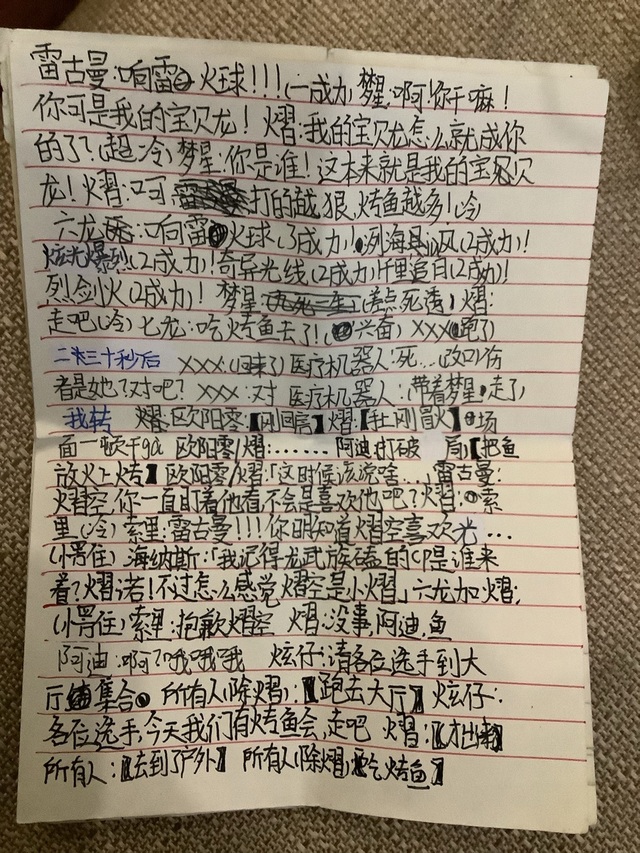 雷古曼:响雷火球!!!(一成力)梦星:啊!你干嘛!
你可是我的宝贝龙!熠:我的宝贝龙怎么就成你
的了?(超冷)梦星:你是谁!这本来就是我的宝贝
龙!熠:呵 打的越狠,烤鱼越多!(冷)
六龙:响雷火球(3成力)!冽海具沨风(2成力)!
炫光爆烈(2成力)!奇异光线(2成力)千里追白(2成力)!
烈剑火(2成力)!梦星(差点死透)熠:
走吧(冷)七龙:吃烤鱼去了!(兴奋)XXX(跑了)
二三十秒后 XXX:(回来了)医疗机器人:死...(改口)伤
者是她?对吧?XXX:对 医疗机器人:(带着梦星走了)
我转 熠:欧阳零:【刚回高】熠:【杜刚冒火】场
面一顿干ga 欧阳零/熠:...... 阿迪:打破 局【把鱼
放火上烤】欧阳零/熠:「这时候该说啥...」雷古曼:
熠空,你一直盯着他看,不会是喜欢他吧?熠:索
里(冷)索里:雷古曼!!!你明知道熠空喜欢光...
(愣住)海纳斯:「我记得龙武族磕的CP是谁来
着?熠诺!不过怎么感觉熠空是小熠」六龙加熠:
(愣住)索里:抱歉熠空 熠:没事,阿迪,鱼
阿迪:啊?哦哦哦 炫仔:请各位选手到大
厅集合 所有人(除熠):【跑去大厅】炫仔:
各位选手,今天我们有烤鱼会,走吧 熠:【才出来】
所有人:【去到了户外】 所有人(除熠)【吃烤鱼】